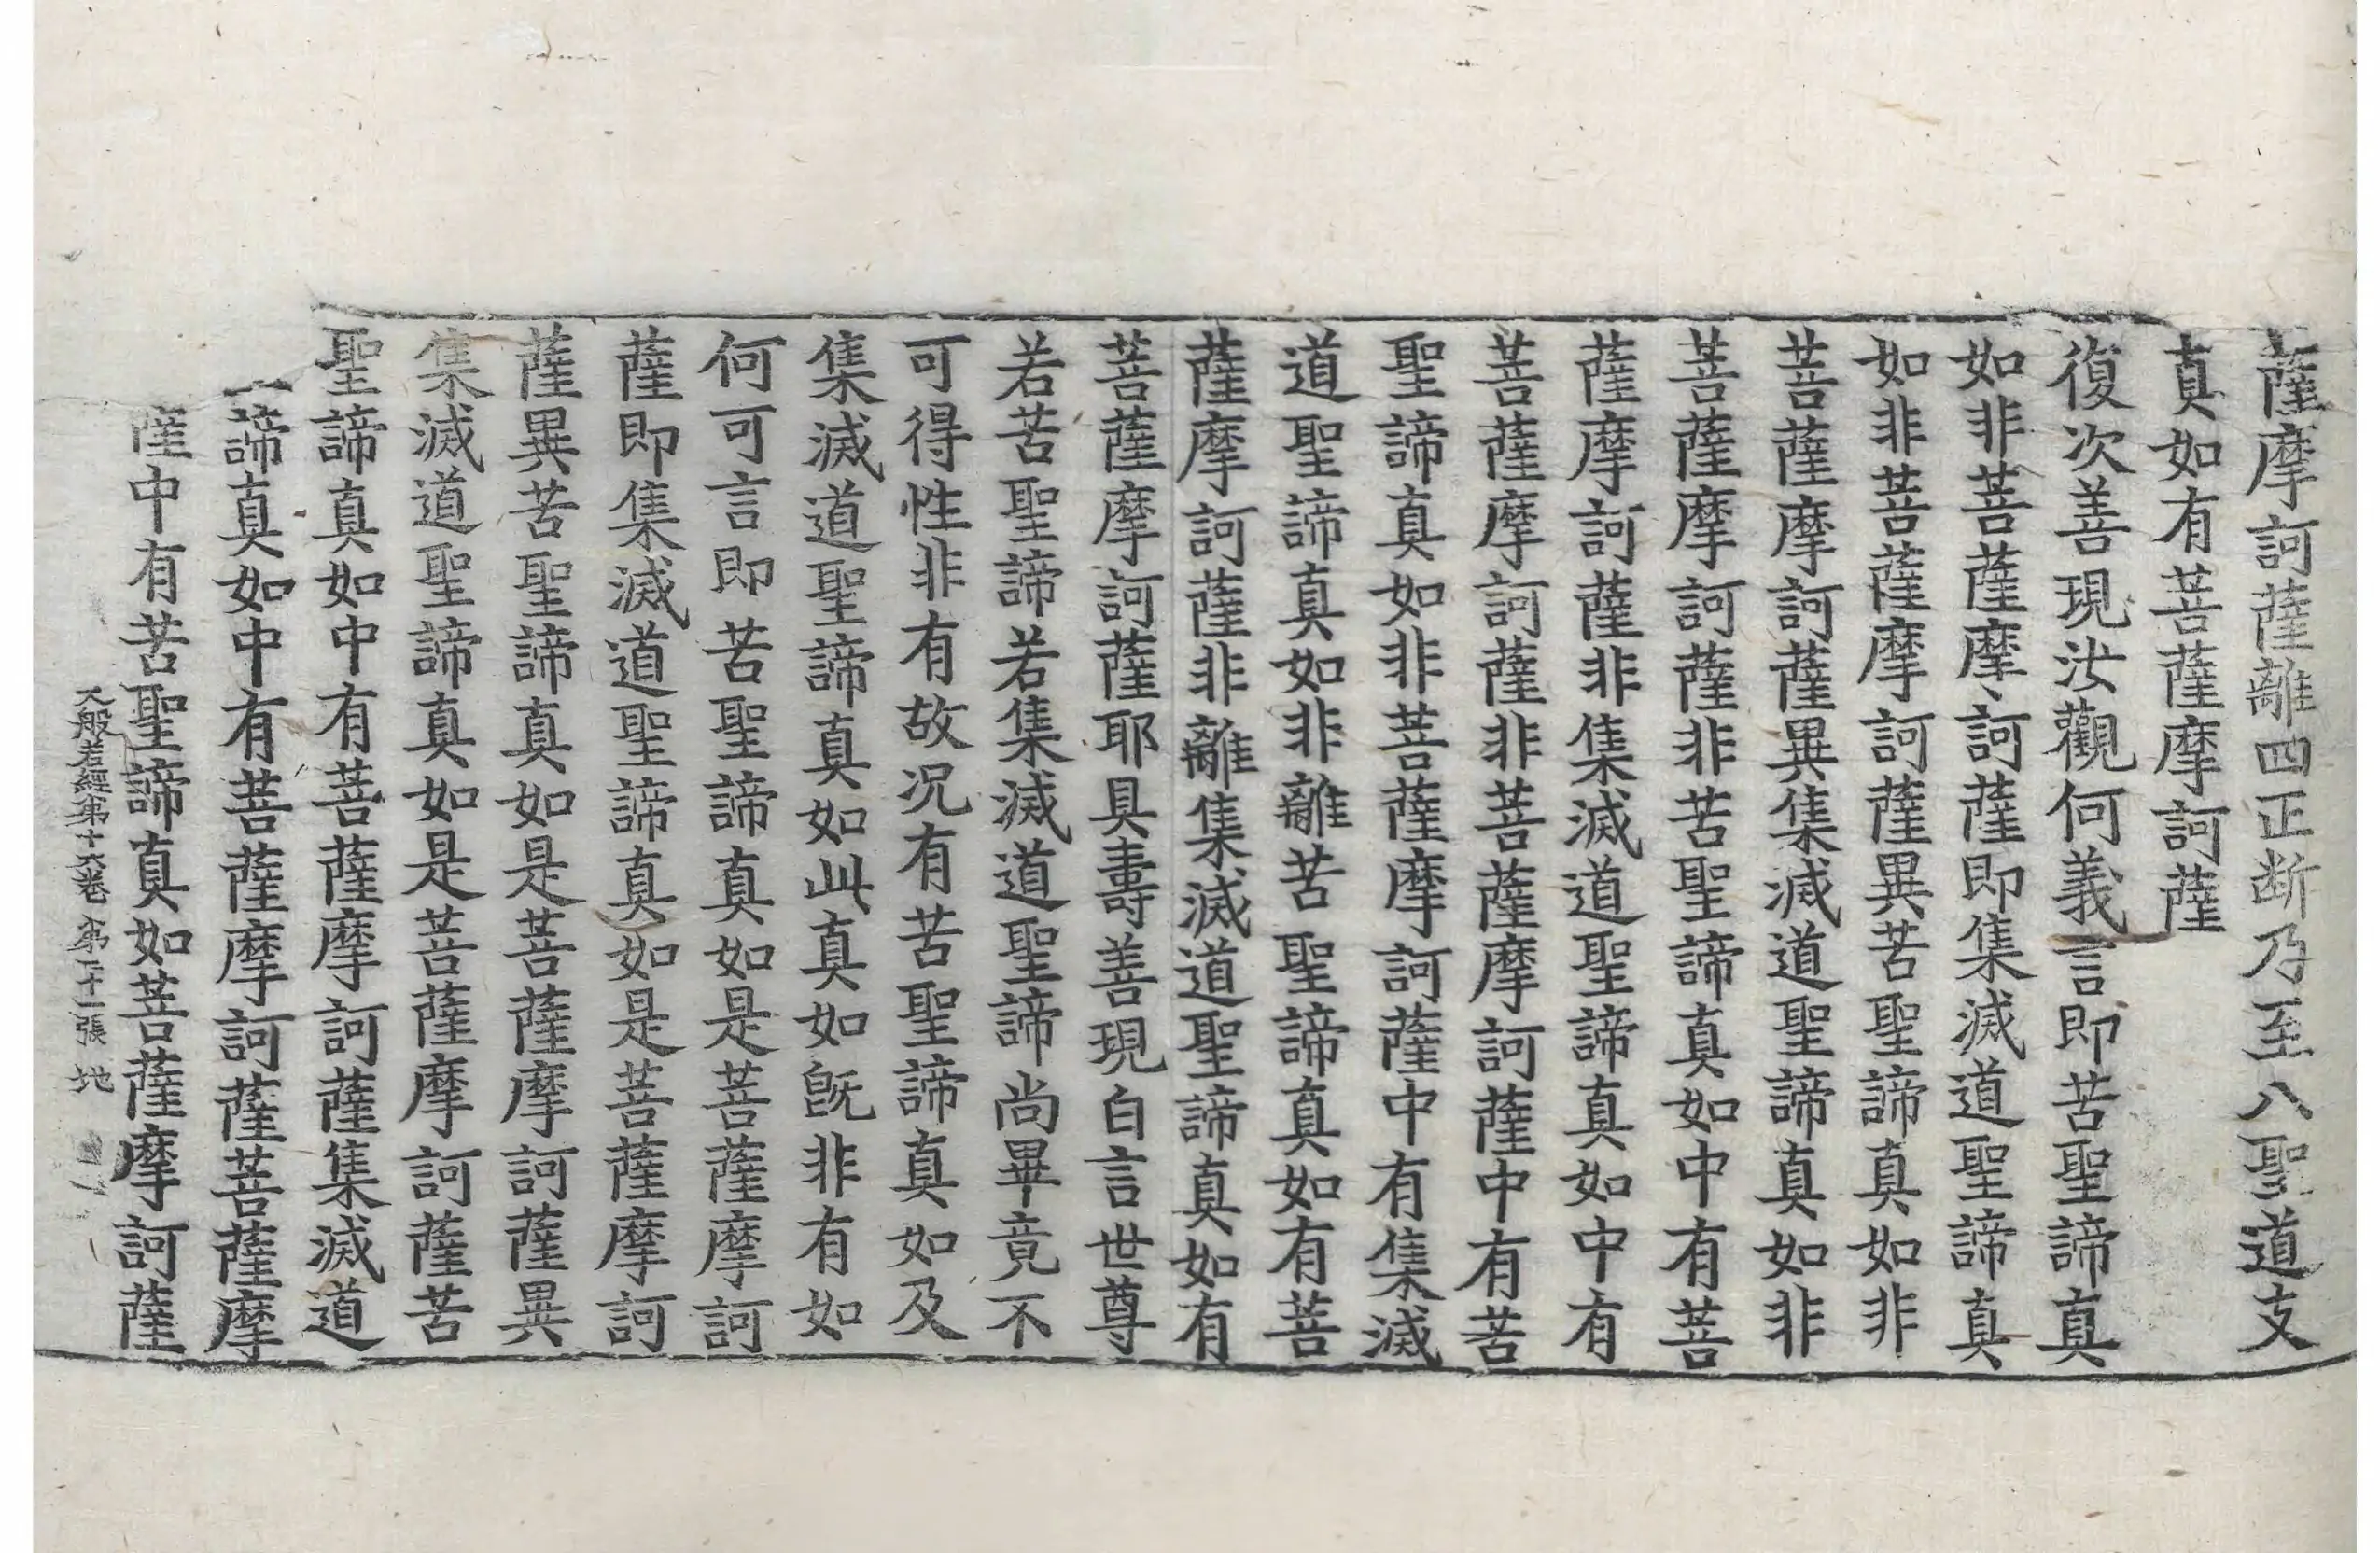 薩摩訶薩離四正断乃至八聖道支
真如有菩薩摩訶薩
復次善現汝觀何義言即苦聖諦真
如非菩薩摩訶薩即集滅道聖諦真
如非菩薩摩訶薩異苦聖諦真如非
菩薩摩訶薩異集滅道聖諦真如非
菩薩摩訶薩非苦聖諦真如中有菩
薩摩訶薩非集滅道聖諦真如中有
菩薩摩訶薩非菩薩摩訶薩中有苦
聖諦真如非菩薩摩訶薩中有集滅
道聖諦真如非離苦聖諦真如有菩
薩摩訶薩非離集滅道聖諦真如有
菩薩摩訶薩耶具壽善現白言世尊
若苦聖諦若集滅道聖諦尚畢竟不
可得性非有故况有苦聖諦真如及
集滅道聖諦真如此真如旣非有如
何可言即苦聖諦真如是菩薩摩訶
薩即集滅道聖諦真如是菩薩摩訶
薩異苦聖諦真如是菩薩摩訶薩異
集滅道聖諦真如是菩薩摩訶薩苦
聖諦真如中有菩薩摩訶薩集滅道
諦真如中有菩薩摩訶薩菩薩摩
薩中有苦聖諦真如菩薩摩訶薩
般若經第十六卷 第二十一張 地